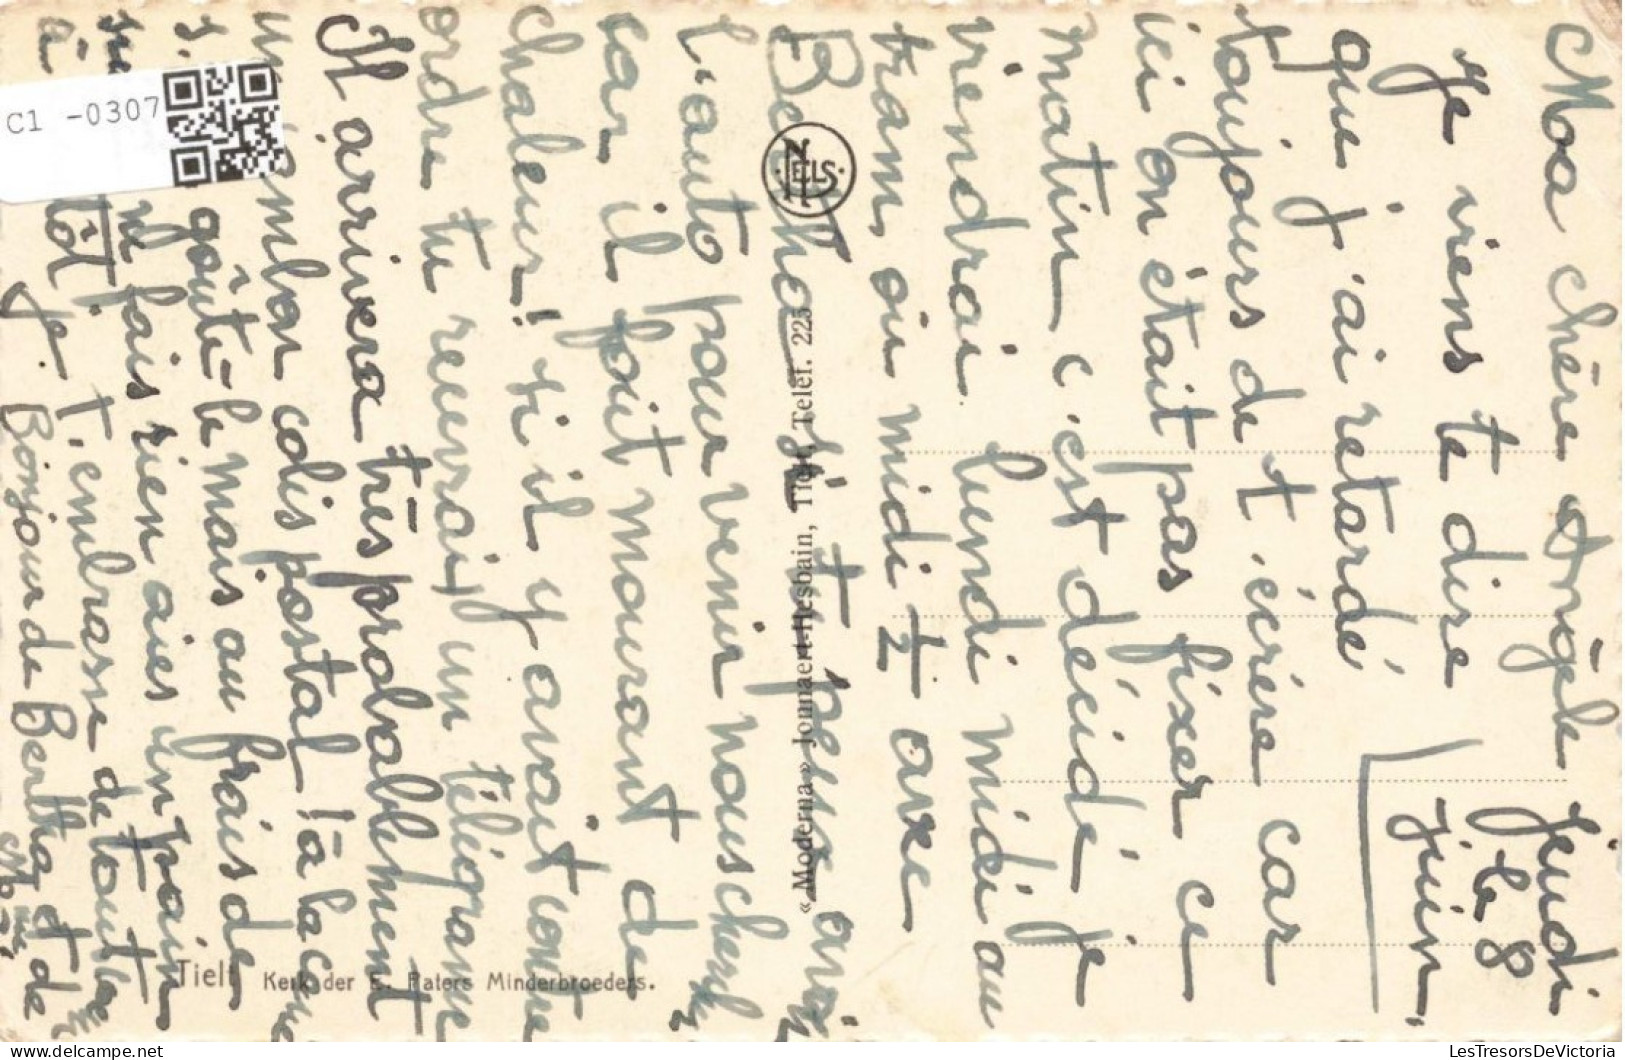 Ma chère Angèle jeudi
le 8
juin,
Je viens te dire
que j'ai retardé
toujours de t'écrire car
ici on était pas fixer ce
matin c'est décidé je
viendrai lundi midi au
tram, ou midi ½ avec
Bertha si t peux avoir
l'auto pour venir nous cherch
car il fait mourant de
chaleur! si il y avait contre
ordre tu recevrais un télégrame
Il arrivera très probablement
un jambon colis postal! à la cave
s. goûte-le mais au frais de
suite ne fais rien aies un pain
à tôt, t'embrasse de tout
Je. Bonjour de Bertha et de
C1 -0307
NELS
«Moderna» Jonnaert-Hesbain, Tielt, Telef. 225
Tielt Kerk der E. Paters Minderbroeders.
LesTresorsDeVictoria